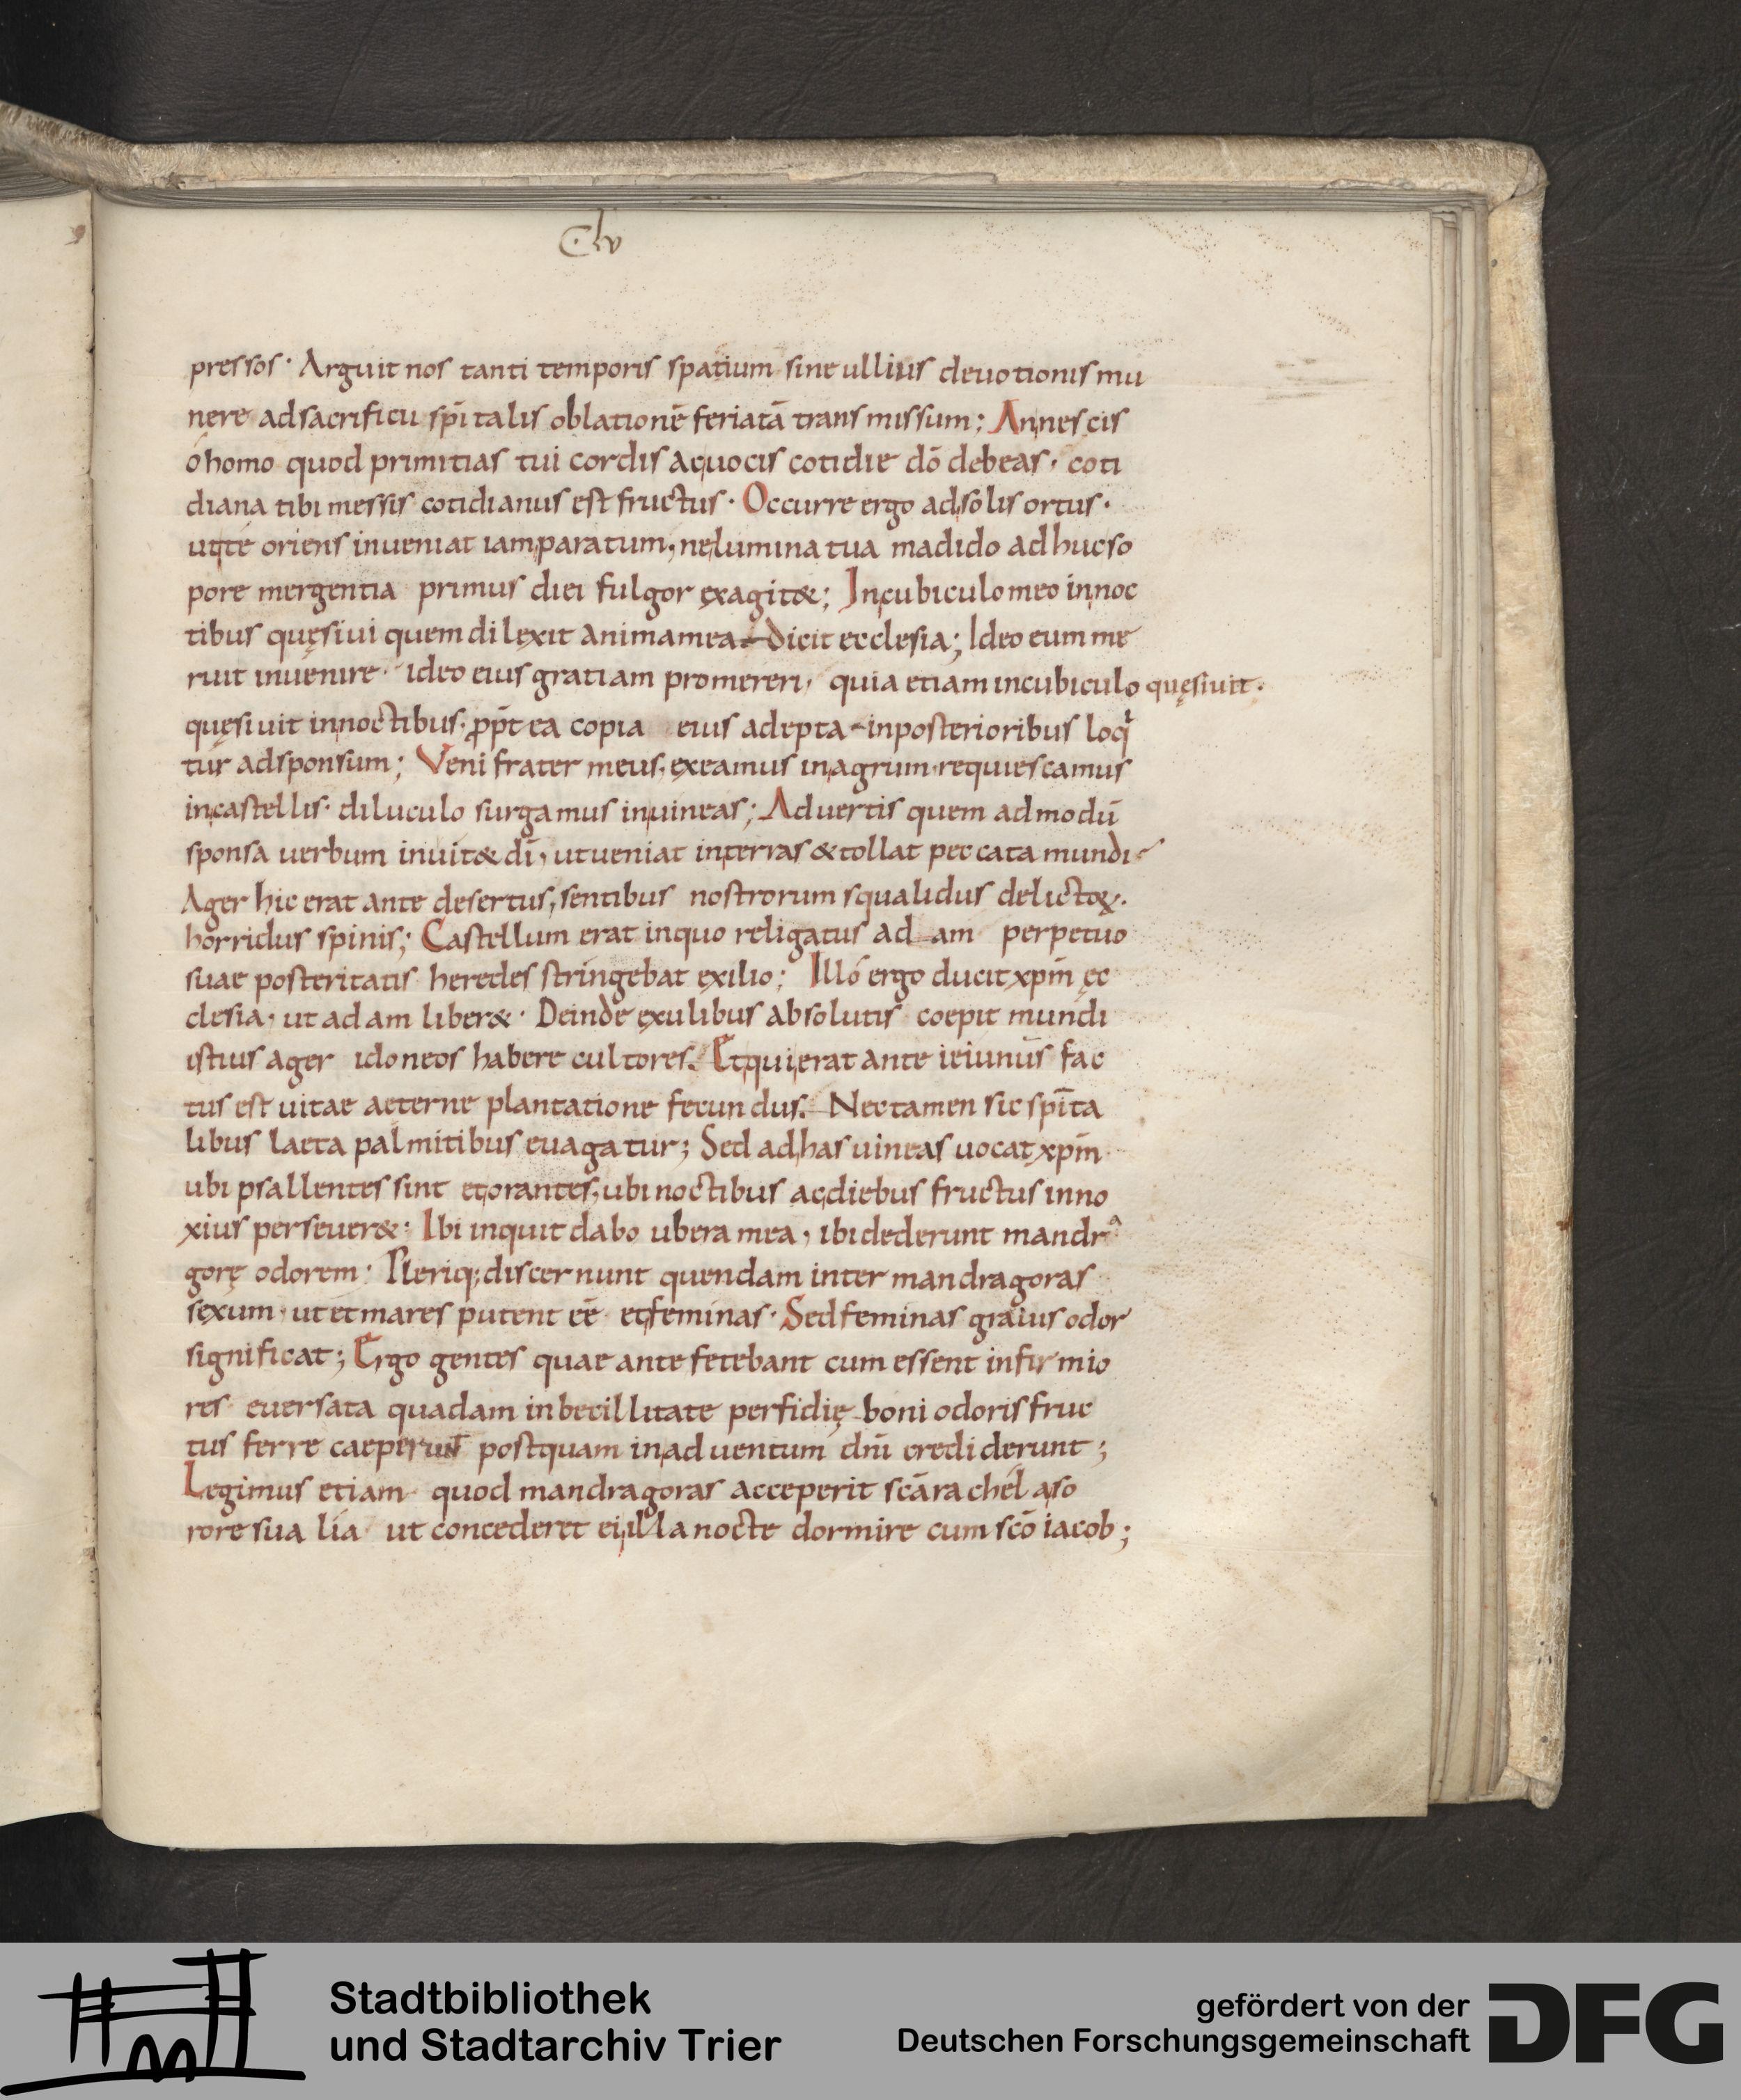 Clv
pressos· Arguit nos tanti temporis spatium sine ullius deuotionis mu
nere ad sacrificii sp̄italis oblationē feriatā transmissum; An nescis
ó homo quod primitias tui cordis ac uocis cotidie dō debeas· coti
diana tibi messis cotidianus est fructus· Occurre ergo ad solis ortus·
ut te oriens inueniat iam paratum, ne lumina tua madido adhuc so
pore mergentia primus diei fulgor exagit&; In cubiculo meo in noc
tibus quęsiui quem dilexit anima mea dicit ecclesia; Ideo eum me
ruit inuenire· ideo eius gratiam promereri, quia etiam in cubiculo quęsiuit·
quęsiuit in noctibus· ꝓpt̄ ea copia eius adepta in posterioribus loqͥ
tur ad sponsum; Veni frater meus, exeamus in agrum· requiescamus
in castellis· diluculo surgamus in uineas; Aduertis quem ad modū
sponsa uerbum inuit& dī, ut ueniat in terras & tollat peccata mundi
Ager hic erat ante desertus, sentibus nostrorum squalidus delictoꝝ·
horridus spinis; Castellum erat in quo religatus adam perpetuo
suae posteritatis heredes stringebat exilio; Illó ergo ducit xp̄m ęc
clesia· ut adam liber&· Deinde exulibus absolutis coepit mundi
istius ager idoneos habere cultores. Et qui erat ante ieiunus fac
tus est uitae aeterne plantatione fecundus. Nec tamen sic sp̄ita
libus laeta palmitibus euagatur; Sed ad has uineas uocat xp̄m
ubi psallentes sint et orantes, ubi noctibus ac diebus fructus inno
xius perseuer&· Ibi inquit dabo ubera mea, ibi dederunt mandrᵃ
gorę odorem· Pleriq; discernunt quendam inter mandragoras
sexum· ut et mares putent eē et feminas· Sed feminas grauius odor
significat; Ergo gentes quae ante fetebant cum essent infirmio
res euersata quadam inbecillitate perfidię boni odoris fruc
tus ferre caeperunt postquam in aduentum dnī crediderunt;
Legimus etiam quod mandragoras acceperit scā rachel a so
rore sua lía ut concederet ei illa nocte dormire cum scō iacob;
Stadtbibliothek
und Stadtarchiv Trier
gefördert von der
Deutschen Forschungsgemeinschaft
DFG